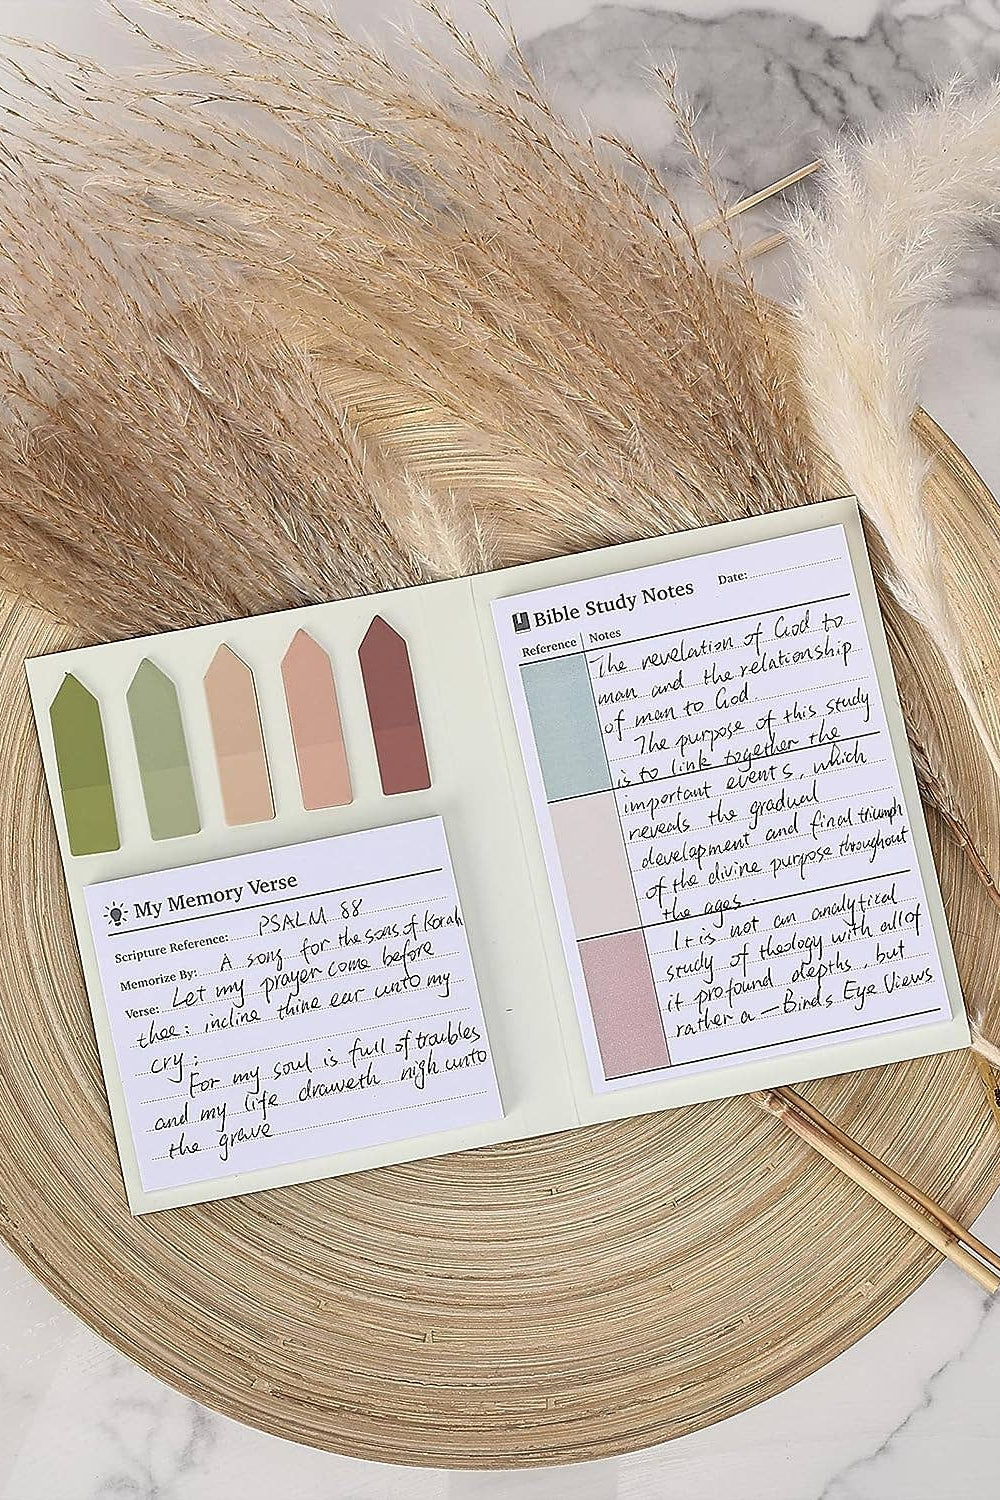 My Memory Verse
Scripture Reference: PSALM 88
Memorize By: A song for the sons of Korah
Verse: Let my prayer come before
thee: incline thine ear unto my
cry:
For my soul is full of troubles
and my life draweth nigh unto
the grave
Bible Study Notes Date:
Reference Notes
The revelation of God to
man and the relationship
of man to God.
The purpose of this study
is to link together the
important events, which
reveals the gradual
development and final triumph
of the divine purpose throughout
the ages.
It is not an analytical
study of theology with all of
it profound depths, but
rather a — Birds Eye Views